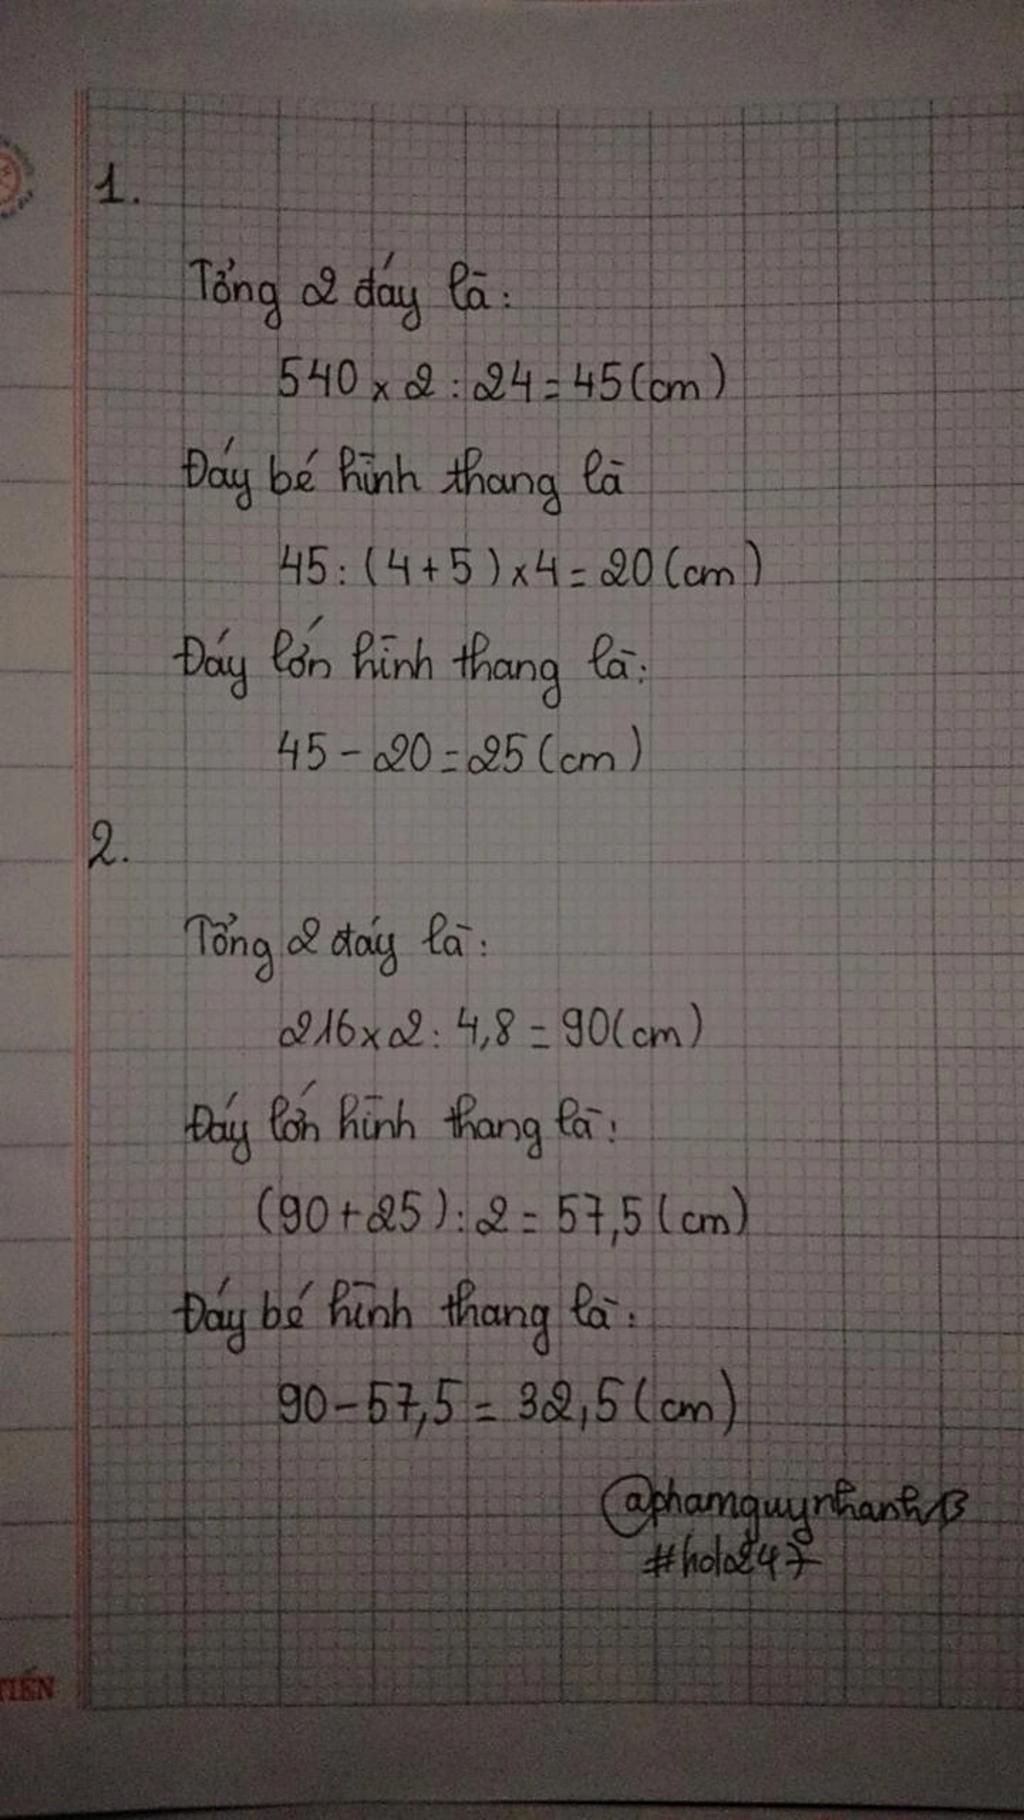 1.
Tổng 2 đáy là:
540 x 2 : 24 = 45 (cm)
Đáy bé hình thang là
45 : (4 + 5) x 4 = 20 (cm)
Đáy lớn hình thang là:
45 - 20 = 25 (cm)
2.
Tổng 2 đáy là:
216 x 2 : 4,8 = 90 (cm)
Đáy lớn hình thang là:
(90 + 25) : 2 = 57,5 (cm)
Đáy bé hình thang là:
90 - 57,5 = 32,5 (cm)
TIẾN